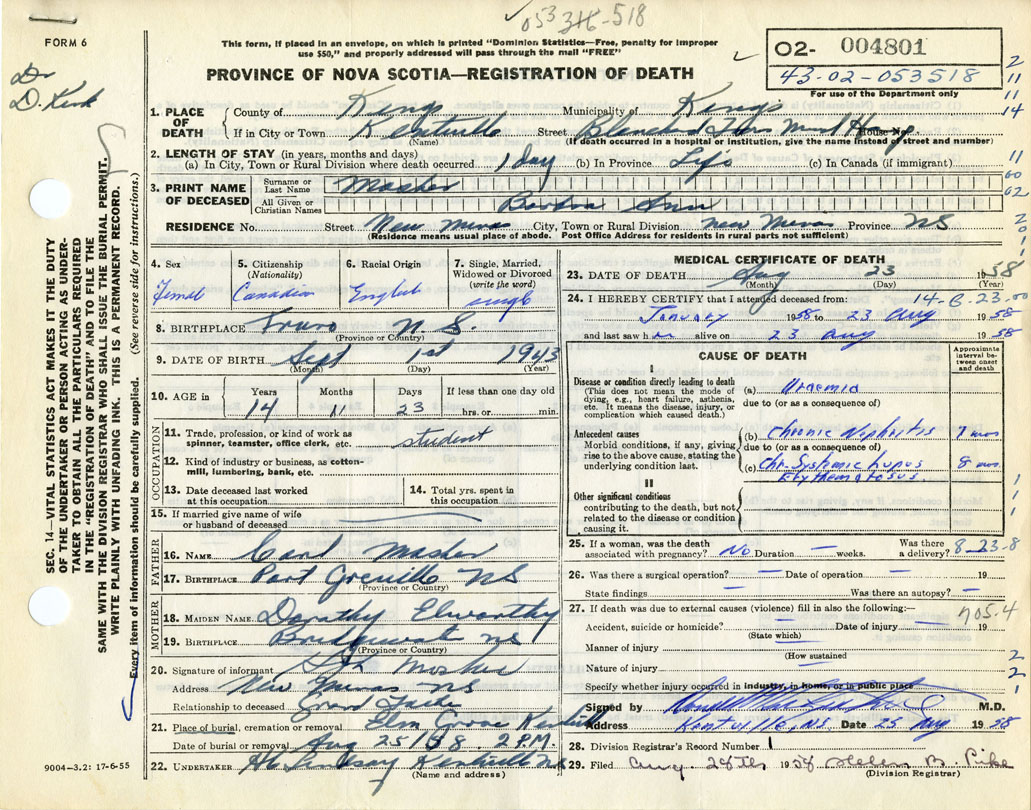 053 518
FORM 6
This form, if placed in an envelope, on which is printed "Dominion Statistics—Free, penalty for improper
use $50," and properly addressed will pass through the mail "FREE"
O2- 004801
43-02-053518
For use of the Department only
Dr
D. Kirk
PROVINCE OF NOVA SCOTIA—REGISTRATION OF DEATH
2
11
11
14
1. PLACE OF DEATH
County of Kings Municipality of Kings
If in City or Town Kentville Street Blanchard Mem Hosp House No.
(Name) (If death occurred in a hospital or institution, give the name instead of street and number)
2. LENGTH OF STAY (in years, months and days)
(a) In City, Town or Rural Division where death occurred 1 day (b) In Province Life (c) In Canada (if immigrant)
11
60
62
3. PRINT NAME OF DECEASED
Surname or Last Name Mosher
All Given or Christian Names Barbra Ann
RESIDENCE No. Street New Minas City, Town or Rural Division New Minas Province NS
(Residence means usual place of abode. Post Office Address for residents in rural parts not sufficient)
2
0
1
SEC. 14—VITAL STATISTICS ACT MAKES IT THE DUTY
OF THE UNDERTAKER OR PERSON ACTING AS UNDER-
TAKER TO OBTAIN ALL THE PARTICULARS REQUIRED
IN THE "REGISTRATION OF DEATH" AND TO FILE THE
SAME WITH THE DIVISION REGISTRAR WHO SHALL ISSUE THE BURIAL PERMIT.
WRITE PLAINLY WITH UNFADING INK. THIS IS A PERMANENT RECORD.
Every item of information should be carefully supplied. (See reverse side for instructions.)
4. Sex
Female
5. Citizenship
(Nationality)
Canadian
6. Racial Origin
English
7. Single, Married,
Widowed or Divorced
(write the word)
single
8. BIRTHPLACE Truro N.S.
(Province or Country)
9. DATE OF BIRTH Sept 1st 1943
(Month) (Day) (Year)
10. AGE in
Years Months Days If less than one day old
14 11 23 hrs. or min.
OCCUPATION
11. Trade, profession, or kind of work as
spinner, teamster, office clerk, etc. student
12. Kind of industry or business, as cotton-
mill, lumbering, bank, etc.
13. Date deceased last worked
at this occupation
14. Total yrs. spent in
this occupation
15. If married give name of wife
or husband of deceased
FATHER
16. NAME Carl Mosher
17. BIRTHPLACE Port Greville NS
(Province or Country)
MOTHER
18. MAIDEN NAME Dorothy Elworthy
19. BIRTHPLACE Bridgewater NS
(Province or Country)
20. Signature of informant Mosher
Address New Minas NS
Relationship to deceased Grand Father
21. Place of burial, cremation or removal Elm Grove Kentville
Date of burial or removal Aug 25/58 2 P.M.
22. UNDERTAKER Lindsay Kentville NS
(Name and address)
9004—3.2: 17-6-55
MEDICAL CERTIFICATE OF DEATH
23. DATE OF DEATH Aug 23 1958
(Month) (Day) (Year)
24. I HEREBY CERTIFY that I attended deceased from: 14-B-23-00
January 1958 to 23 Aug 1958
and last saw her alive on 23 Aug 1958
CAUSE OF DEATH
Approximate
interval be-
tween onset
and death
I
Disease or condition directly leading to death
(This does not mean the mode of
dying, e.g., heart failure, asthenia,
etc. It means the disease, injury, or
complication which caused death.)
(a) Uraemia
due to (or as a consequence of)
Antecedent causes
Morbid conditions, if any, giving
rise to the above cause, stating the
underlying condition last.
(b) Chronic Nephritis 7 mos
due to (or as a consequence of)
(c) Chr. Systemic Lupus 8 mos.
Erythematosus.
II
Other significant conditions
contributing to the death, but not
related to the disease or condition
causing it.
1
1
1
25. If a woman, was the death
associated with pregnancy? No Duration — weeks. Was there
a delivery? 8-23-8
26. Was there a surgical operation? — Date of operation — 19
State findings — Was there an autopsy? —
27. If death was due to external causes (violence) fill in also the following:— 705.4
Accident, suicide or homicide? Date of injury — 19
(State which)
Manner of injury
(How sustained
Nature of injury
Specify whether injury occurred in industry, in home, or in public place
2
2
1
Signed by M.D.
Address Kentville, N.S. Date 25 Aug 1958
28. Division Registrar's Record Number 1
29. Filed Aug. 28th 1958 Helen B. Pike
(Division Registrar)